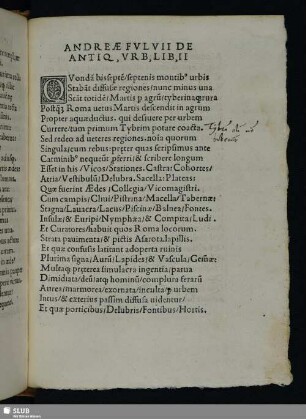 ANDREÆ FVLVII DE
ANTIQ, VRB, LIB, II
QVondā bissepté/septenis montib⁹ urbis
Stabāt diffusæ regiones/nunc minus una
Scāt totidē/Martis p agrū/tyberinaq; rura
Postq̃ Roma uetus Martis descendit in agrum
Propter aquæductus. qui desuere per urbem
Currere/tum primum Tybrim potare coacta.
Sed redeo ad ueteres regiones. nosq; quorum
Singula/cum rebus/præter quas scripsimus ante
Carminib⁹ nequeūt pferri/& scribere longum
Esset in his/Vicos/Stationes. Castra/Cohortes/
Atria/Vestibulū/Delubra. Sacella/Plateas
Quæ fuerint Ædes/Collegia/Vicomagistri.
Cum campis/Cliui/Pistrina/Macella/Tabernæ
Stagna/Lauacra/Lacus/Piscinæ/Balnea/Fontes.
Insulæ/& Euripi/Nymphæa/& Compita/Ludi.
Et Curatores/habuit quos Roma locorum.
Strata pauimenta/& pictis Asarota lapillis.
Et quæ confusis latitant adoperta ruinis
Plurima signa/Aurū/Lapides/& Vascula/Gemæ
Multaq; præterea simulacra ingentia/parua
Dimidiata/deūatq; hominū/complura ferarū
Aurea/marmorea/exornata/inculta q̃ urbem
Intus/& exterius passim diffusa uidentur/
Et quæ porticibus/Delubris/Fontibus/Hortis.
SLUB